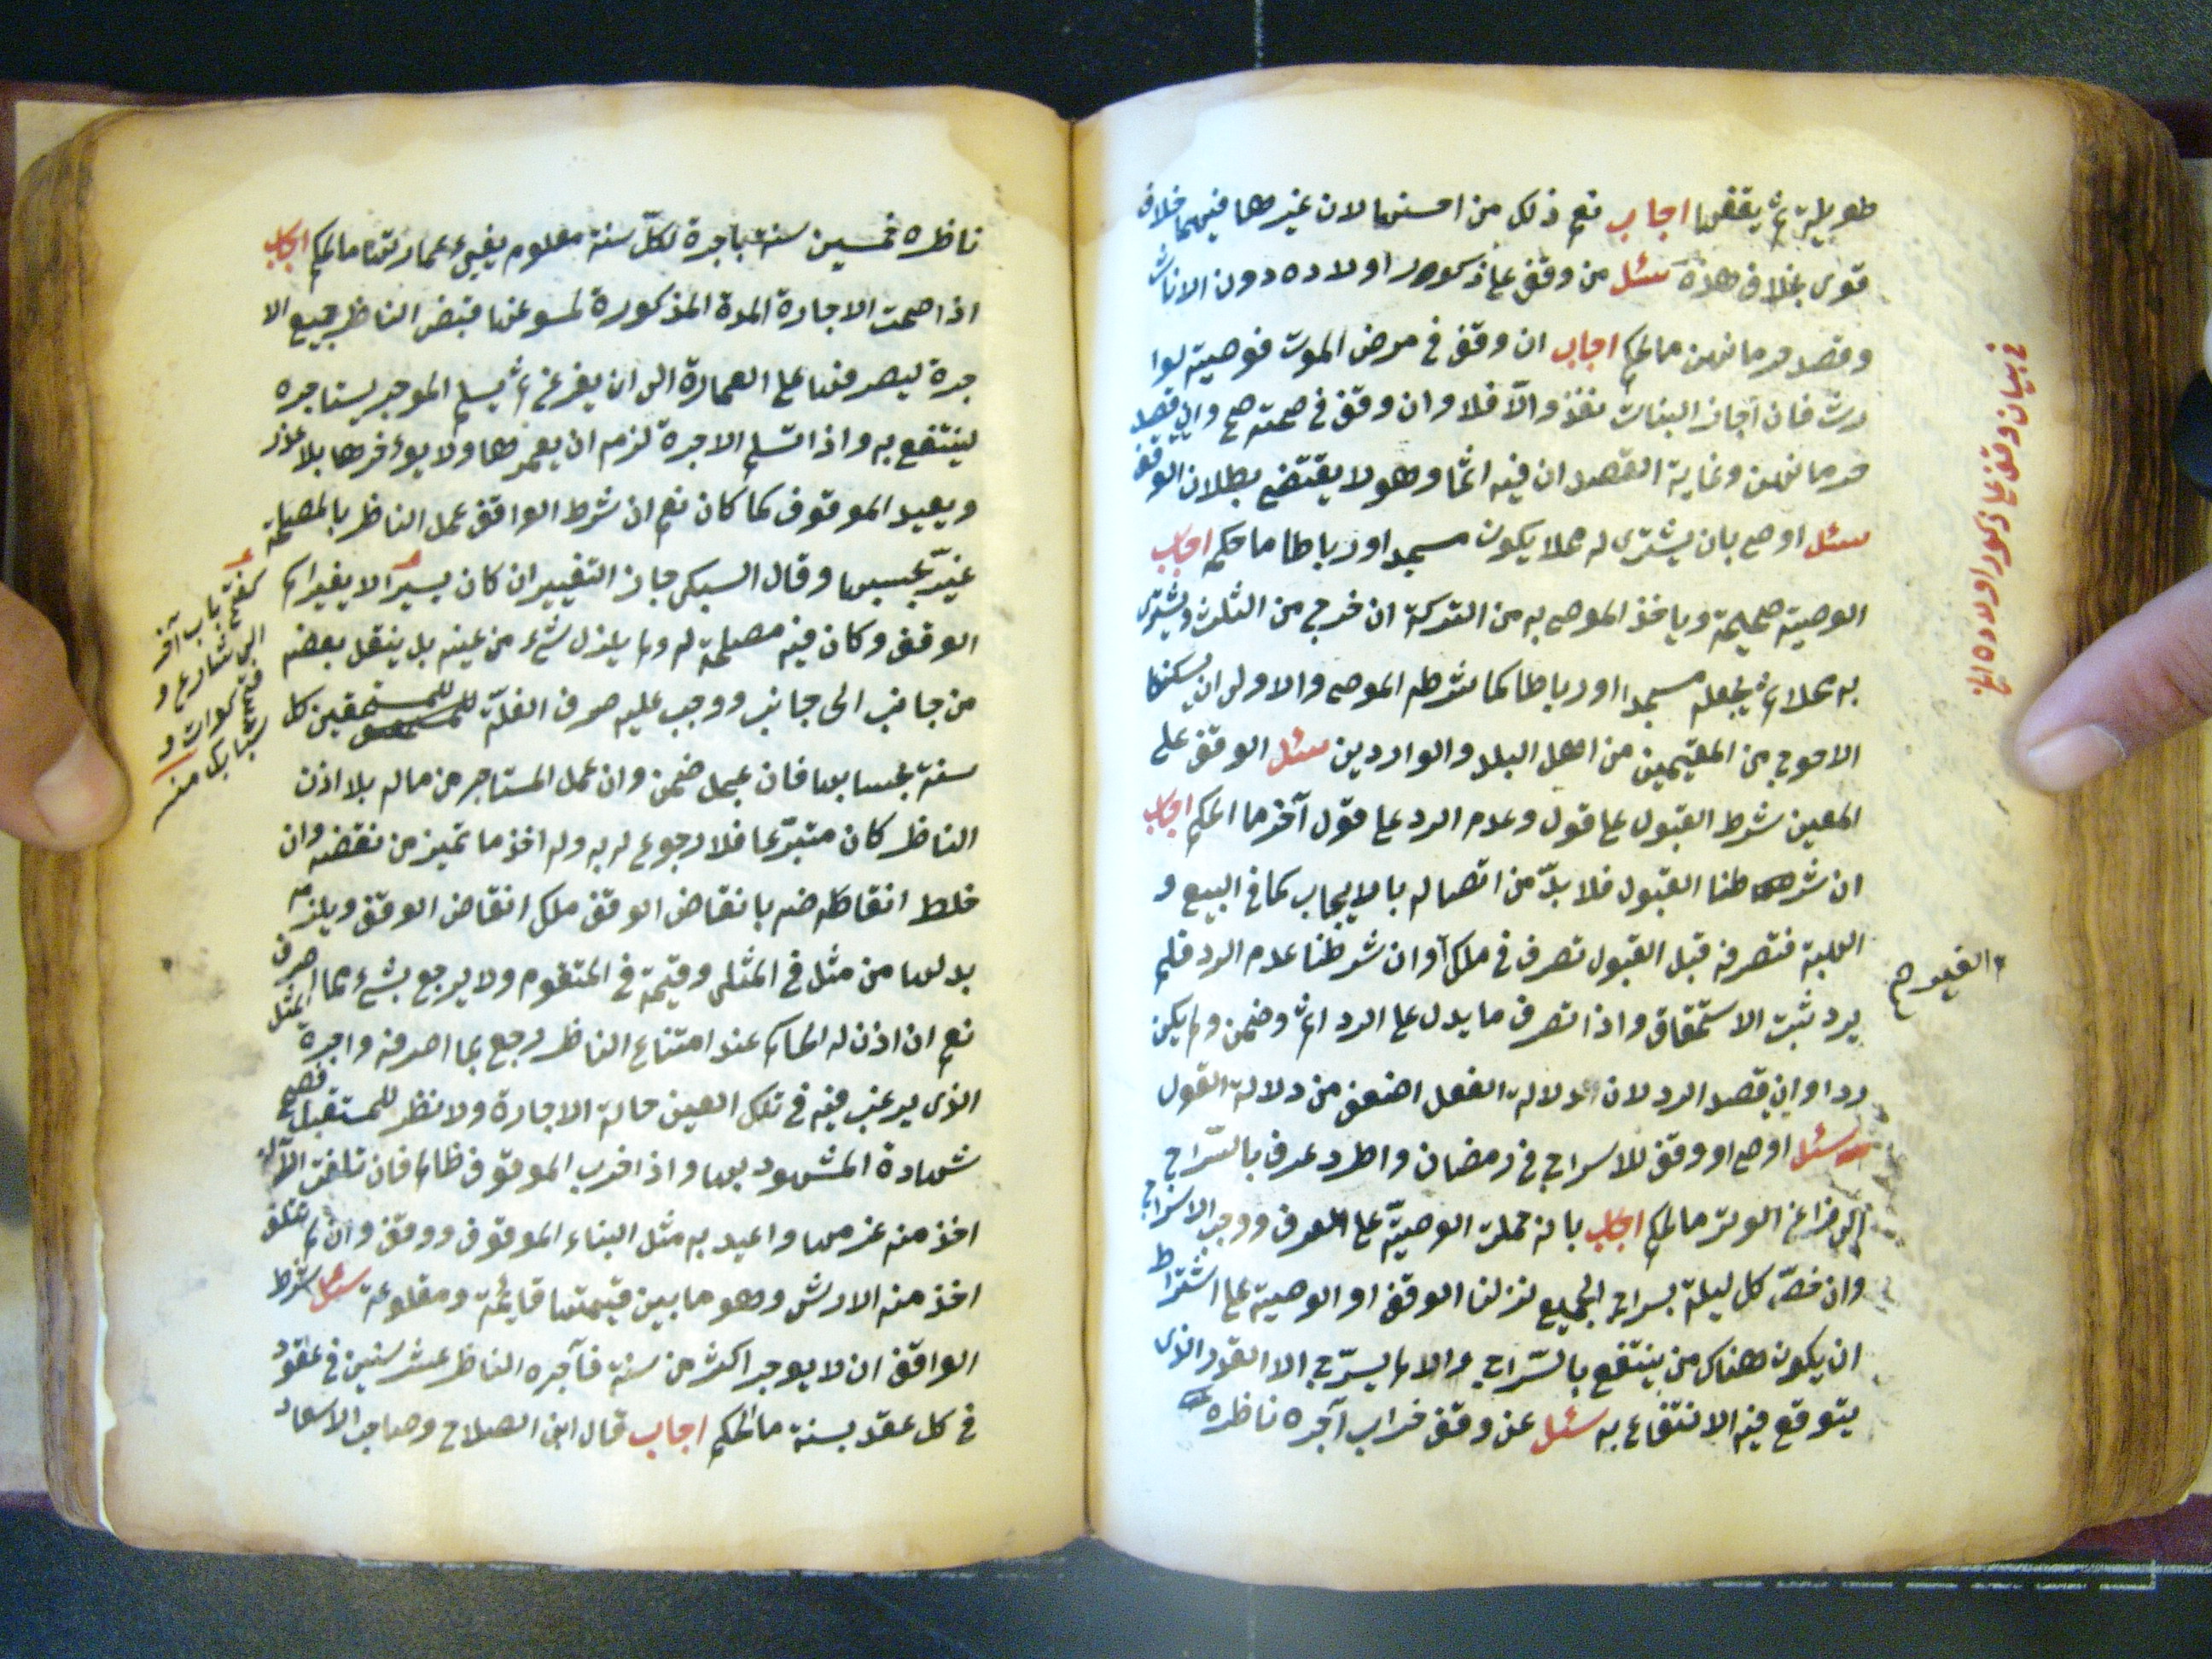 طويلة ثم يقفها اجاب نعم ذلك من احسنها لان غيرها فيهما خلاف
قوى بخلاف هذه سئل من وقف على ذكور اولاده دون الاناث
وقصد حرمانهن ما الحكم اجاب ان وقف في مرض الموت فوصية لوا
رث فان اجاز البنات نفذ والّا فلا وان وقف في صحته صح وان قصد
حرمانهن وغاية القصد ان فيه اثما وهو لا يقتضي بطلان الوقف
سئل اوصى بان يشترى له محلا يكون مسجدا او رباطا ما حكم اجاب
الوصية صحيحة وياخذ الموصى به من التركة ان خرج من الثلث ويشترى
به محلا ثم يجعله مسجدا او رباطا كما شرطه الموصى والاولى ان يسكنها
الاحوج من المقيمين من اهل البلد والواردين سئل الوقف على
المعين شرط القبول على قول وعدم الرد على قول آخر ما الحكم اجاب
ان شرطنا القبول فلا بدّ من اتصاله بالايجاب كما في البيع و
الهبة فتصرفه قبل القبول تصرف في ملك او ان شرطنا عدم الرد فلم
يرد ثبت الاستحقاق واذا تصرف ما يدل على الرد اثم وضمن ولم يكن
ردا وان قصد الرد لان دلالة الفعل اضعف من دلالة القول
سئل اوصى او وقف للاسراج في رمضان واطرد عرف بالسّراج
الى فراغ الوتر ما الحكم اجاب بانه حملت الوصيّة على العرف ووجب الاسراج
وان خصّ كل ليلة بسراج الجميع نزلنا الوقف او الوصية على اشتراط
ان يكون هناك من ينتفع بالسّراج والا لم يسرّج الا القدر الذى
يتوقع فيه الانتفاع به سئل عن وقف خراب آجره ناظره
في بيان وقف على ذكور اولاده الخ
ناظره خمسين سنة باجرة لكلّ سنة معلوم يفي عمارتها ما الحكم اجاب
اذا صحت الاجارة المدة المذكورة لمسوغها فقبض الناظر جميع الا
جرة ليصرفها على العمارة الى ان يفرغ ثم يسلم الموجر يستاجره
لينتفع به واذا تسلم الاجرة لزمه ان يعمرها ولا يوخرها بلا عذر
ويعيد الموقوف كما كان نعم ان شرط الواقف عمل الناظر بالمصلحة
غيّر بحسبها وقال السبكى جاز التغيير ان كان يسيرا لا يغير اسم
الوقف وكان فيه مصلحة له ولم يلزل شيء من عينه بل ينقل بعضه
من جانب الى جانب ووجب عليه صرف الغلّة للمستحقين كل
سنة بحسابها فان عجل ضمن وان عمل المستاجر من ماله بلا اذن
الناظر كان متبرّعا فلا رجوع له به وله اخذ ما تميز من نقضه وان
خلط انقاضه بانقاض الوقف ملك انقاض الوقف ويلزمه
بدلها من مثل في المثلى وقيمة في المتقوم ولا يرجع بشيء مما صرف
نعم ان اذن له الحاكم عند امتناع الناظر رجع بما اصرفه واجرة المثل
الذى يرغب فيه في تلك العين حالة الاجارة ولا نظر للمستقبل فصح
شهادة المشهود بها واذا اخرب الموقوف ظالم فان تلفت الآلة
اخذ منه غرمها واعيد به مثل البناء الموقوف ووقف وان لم تتلف
اخذ منه الارش وهو ما بين قيمتها قايمة ومقلوعة سئل شرط
الواقف ان لا يوجر اكثر من سنة فآجره الناظر عشر سنين في عقود
في كل عقد بسنة ما الحكم اجاب قال ابن الصلاح وصاحب الاسعاد
كفتح باب آخر
الى شارع و
فتح كوات و
شبابيك منه